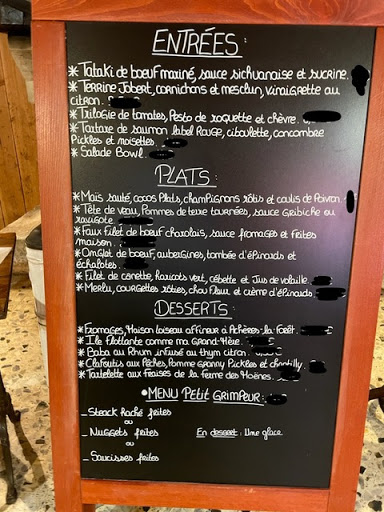 ENTRÉES :
* Tataki de boeuf mariné, sauce sichuanaise et sucrine.
* Terrine Jobert, cornichons et mesclun, vinaigrette au
citron.
* Trilogie de tomates, Pesto de roquette et chèvre.
* Tartare de saumon label Rouge, ciboulette, concombre
Pickles et noisettes.
* Salade Bowl
PLATS :
* Maïs sauté, cocos Plats, champignons rôtis et coulis de Poivron
* Tête de veau, Pommes de terre tournées, sauce Gribiche ou
ravigote
* Faux filet de boeuf charolais, sauce fromages et frites
maison.
* Onglet de boeuf, aubergines, tombée d'épinards et
échalotes.
* Filet de canette, haricots vert, cébette et Jus de volaille.
* Merlu, courgettes rôties, chou fleur et crème d'épinards
DESSERTS :
* Fromages, Maison Loiseau affineur à Achères-la-Forêt.
* Ile flottante comme ma Grand-Mère.
* Baba au Rhum infusé au thym citron.
* Clafoutis aux Pêches, Pomme granny Pickles et chantilly.
* Tartelette aux fraises de la ferme des
• MENU Petit GRIMPEUR :
_ Steack haché frites
ou
_ Nuggets frites En dessert : Une glace
ou
_ Saucisses frites